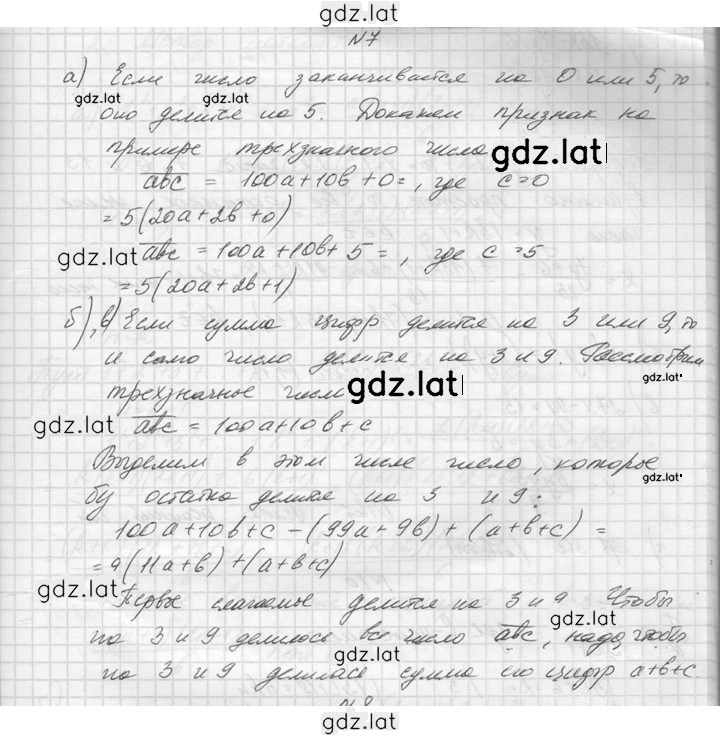 gdz.lat
N7
а) Если число заканчивается на 0 или 5, то
gdz.lat gdz.lat
оно делится на 5. Докажем признак на
примере трехзначного числа gdz.lat
abc = 100a+10b+0=, где c=0
=5(20a+2b+0)
gdz.lat abc = 100a+10b+5=, где c=5
=5(20a+2b+1)
б), в) Если сумма цифр делится на 3 или 9, то
и само число делится на 3 и 9. Рассмотрим
трехзначное число gdz.lat gdz.lat
gdz.lat abc = 100a+10b+c
Выделим в этом числе число, которое
gdz.lat
бу остатка делится на 3 и 9:
100a+10b+c-(99a+9b)+(a+b+c)=
=9(11a+b)+(a+b+c)
gdz.lat Первое слагаемое делится на 3 и 9. Чтобы
gdz.lat
на 3 и 9 делилось все число abc, надо, чтобы
gdz.lat
на 3 и 9 делилась сумма его цифр a+b+c
N8
gdz.lat